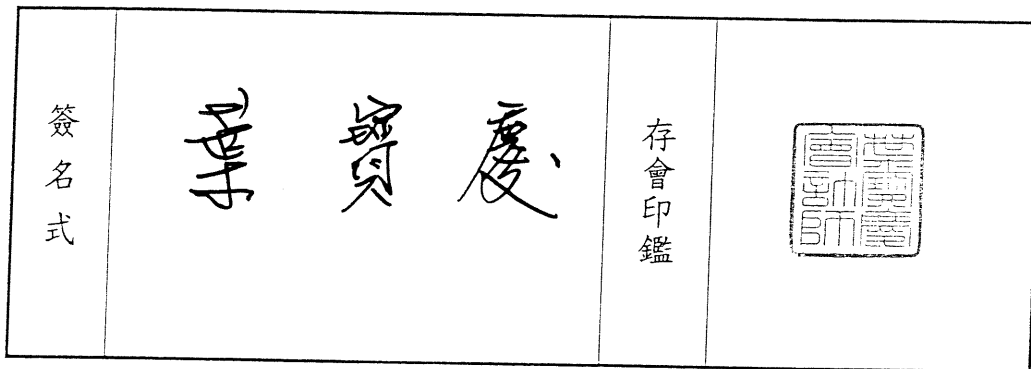 簽名式
葉寶慶
存會印鑑
葉寶慶會計師